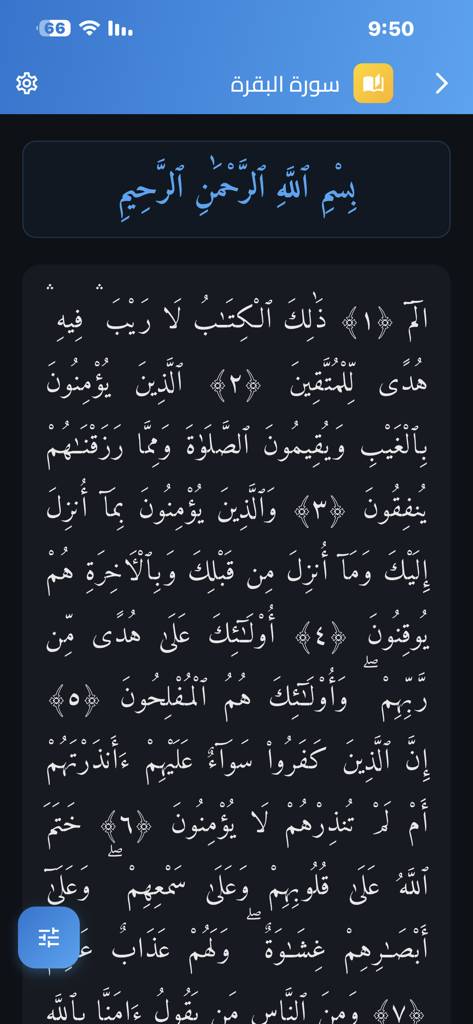 66
9:50
سورة البقرة
بِسْمِ ٱللَّهِ ٱلرَّحْمَٰنِ ٱلرَّحِيمِ
الٓمٓ ﴿١﴾ ذَٰلِكَ ٱلْكِتَـٰبُ لَا رَيْبَ ۛ فِيهِ ۛ
هُدًى لِّلْمُتَّقِينَ ﴿٢﴾ ٱلَّذِينَ يُؤْمِنُونَ
بِٱلْغَيْبِ وَيُقِيمُونَ ٱلصَّلَوٰةَ وَمِمَّا رَزَقْنَـٰهُمْ
يُنفِقُونَ ﴿٣﴾ وَٱلَّذِينَ يُؤْمِنُونَ بِمَآ أُنزِلَ
إِلَيْكَ وَمَآ أُنزِلَ مِن قَبْلِكَ وَبِٱلْـَٔاخِرَةِ هُمْ
يُوقِنُونَ ﴿٤﴾ أُو۟لَـٰٓئِكَ عَلَىٰ هُدًى مِّن
رَّبِّهِمْ ۖ وَأُو۟لَـٰٓئِكَ هُمُ ٱلْمُفْلِحُونَ ﴿٥﴾
إِنَّ ٱلَّذِينَ كَفَرُوا۟ سَوَآءٌ عَلَيْهِمْ ءَأَنذَرْتَهُمْ
أَمْ لَمْ تُنذِرْهُمْ لَا يُؤْمِنُونَ ﴿٦﴾ خَتَمَ
ٱللَّهُ عَلَىٰ قُلُوبِهِمْ وَعَلَىٰ سَمْعِهِمْ ۖ وَعَلَىٰٓ
أَبْصَـٰرِهِمْ غِشَـٰوَةٌ ۖ وَلَهُمْ عَذَابٌ
﴿٧﴾ وَمِنَ ٱلنَّاسِ مَن يَقُولُ ءَامَنَّا بِٱللَّهِ